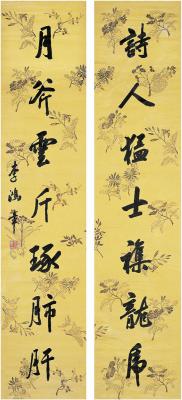 詩人猛士雜龍虎
月斧雲斤琢肺肝
李鴻章